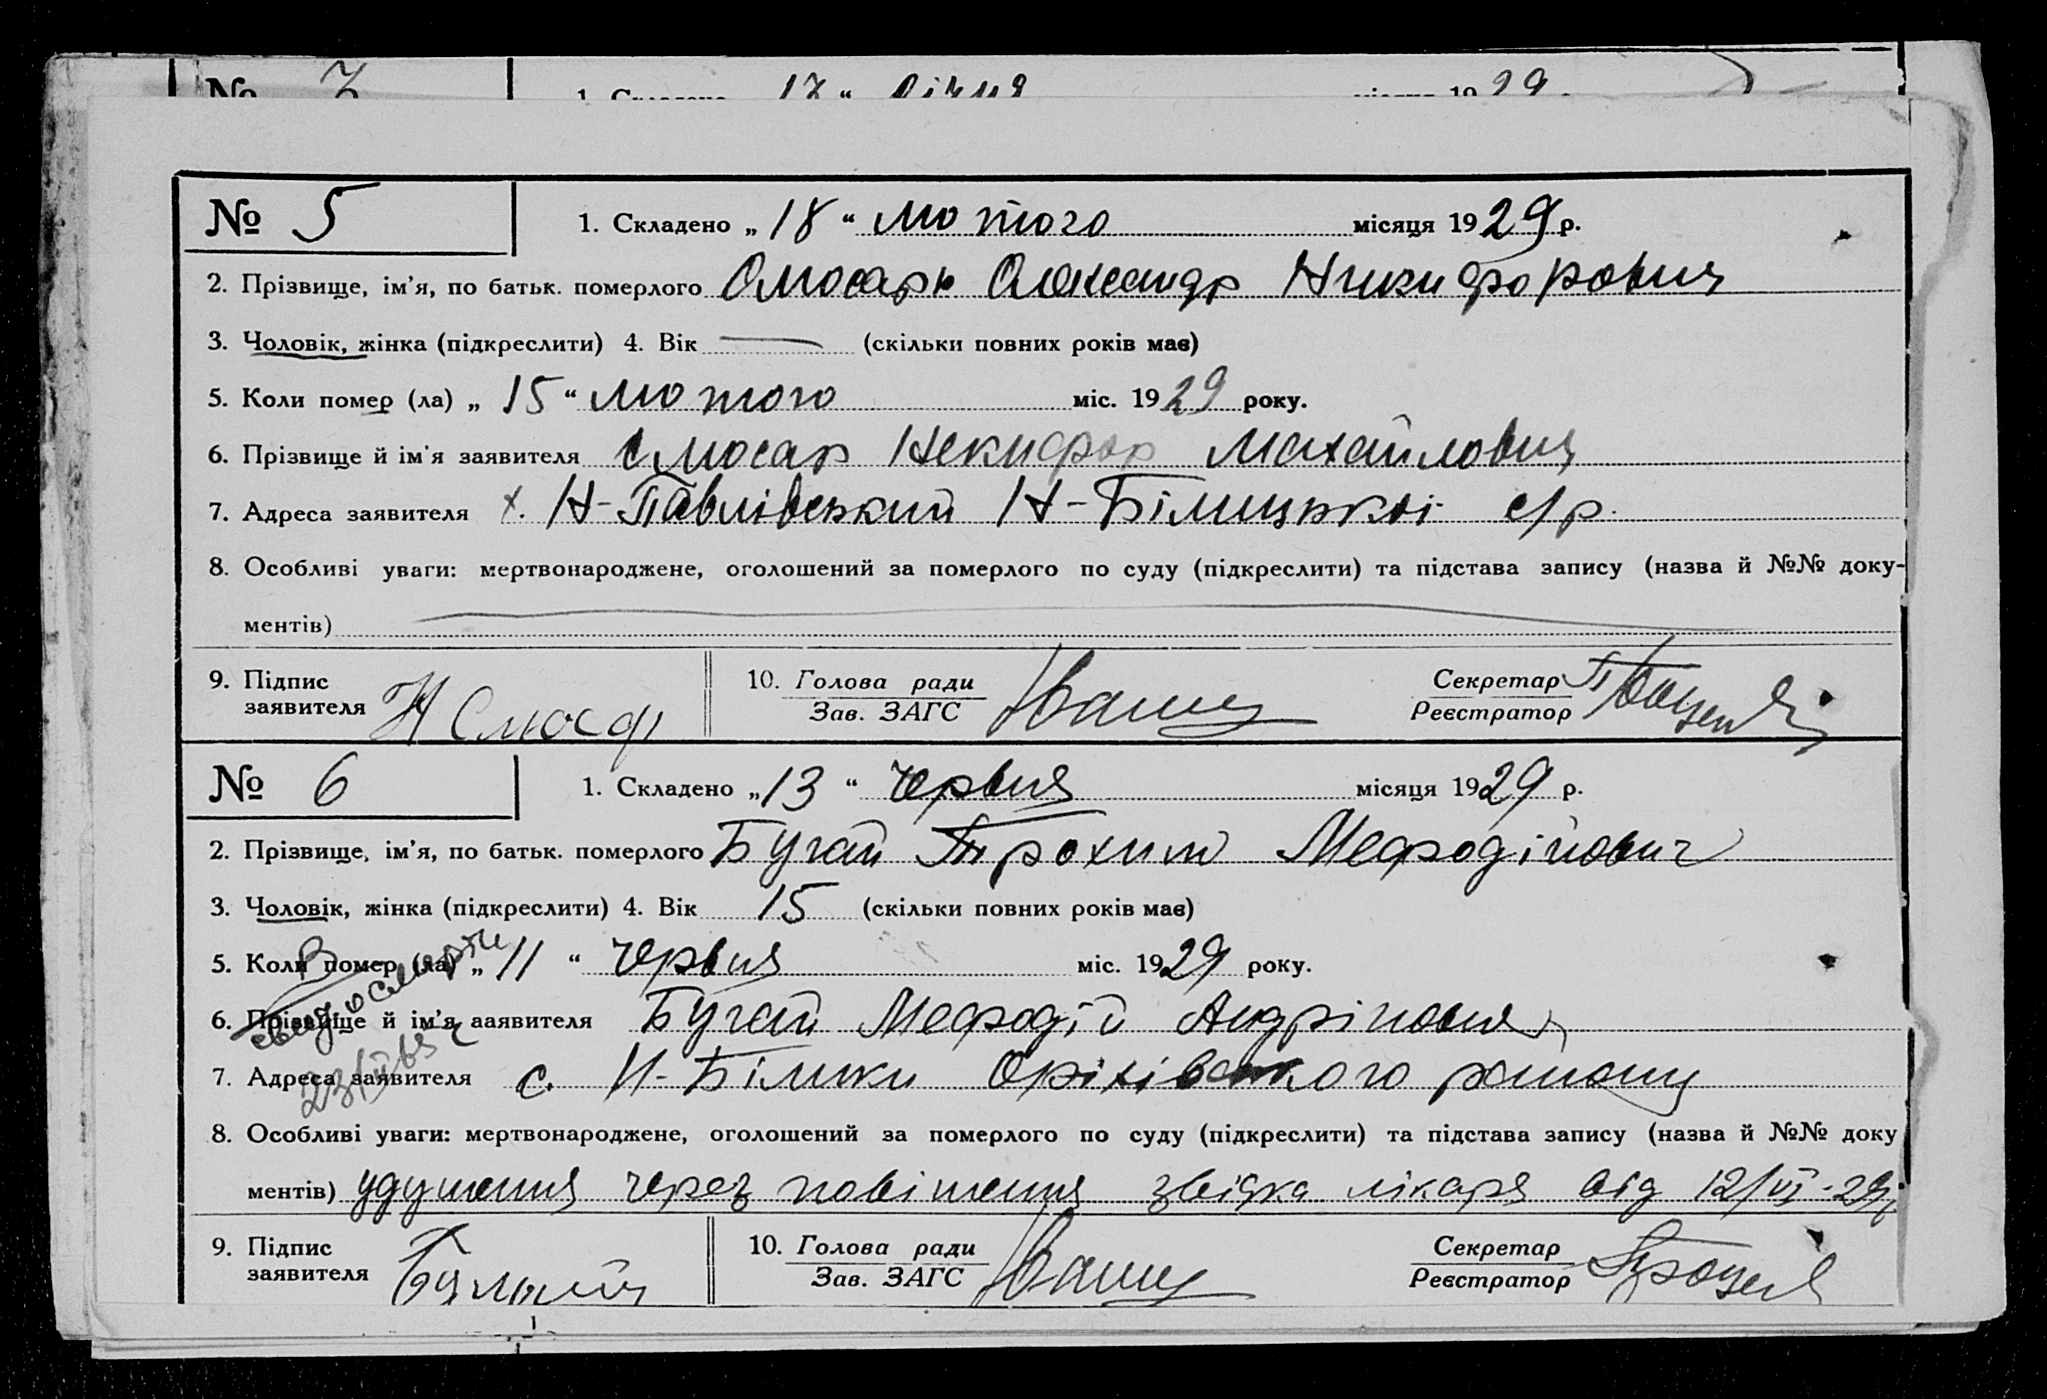 № 7 1. Складено 17 “ січня місяця 1929
№ 5 1. Складено „ 18 “ лютого місяця 1929 р.
2. Прізвище, ім'я, по батьк. померлого Слюсарь Олександр Никифорович
3. Чоловік, жінка (підкреслити) 4. Вік — (скільки повних років має)
5. Коли помер (ла) „ 15 “ лютого міс. 1929 року.
6. Прізвище й ім'я заявителя Слюсар Некифор Михайлович
7. Адреса заявителя х. Н-Павлівський Н-Білицької с/р.
8. Особливі уваги: мертвонароджене, оголошений за померлого по суду (підкреслити) та підстава запису (назва й №№ доку-
ментів)
9. Підпис заявителя Н Слюсар 10. Голова ради Секретар
Зав. ЗАГС Реєстратор
№ 6 1. Складено „ 13 “ червня місяця 1929 р.
2. Прізвище, ім'я, по батьк. померлого Бугай Трохим Мефодійович
3. Чоловік, жінка (підкреслити) 4. Вік 15 (скільки повних років має)
5. Коли помер (ла) „ 11 “ червня міс. 1929 року.
6. Прізвище й ім'я заявителя Бугай Мефодій Андрійович
7. Адреса заявителя с. Н-Білики Оріхівського району
8. Особливі уваги: мертвонароджене, оголошений за померлого по суду (підкреслити) та підстава запису (назва й №№ доку
ментів) удушення через повішення звідка лікаря від 12/VI-29р
9. Підпис заявителя 10. Голова ради Секретар
Зав. ЗАГС Реєстратор